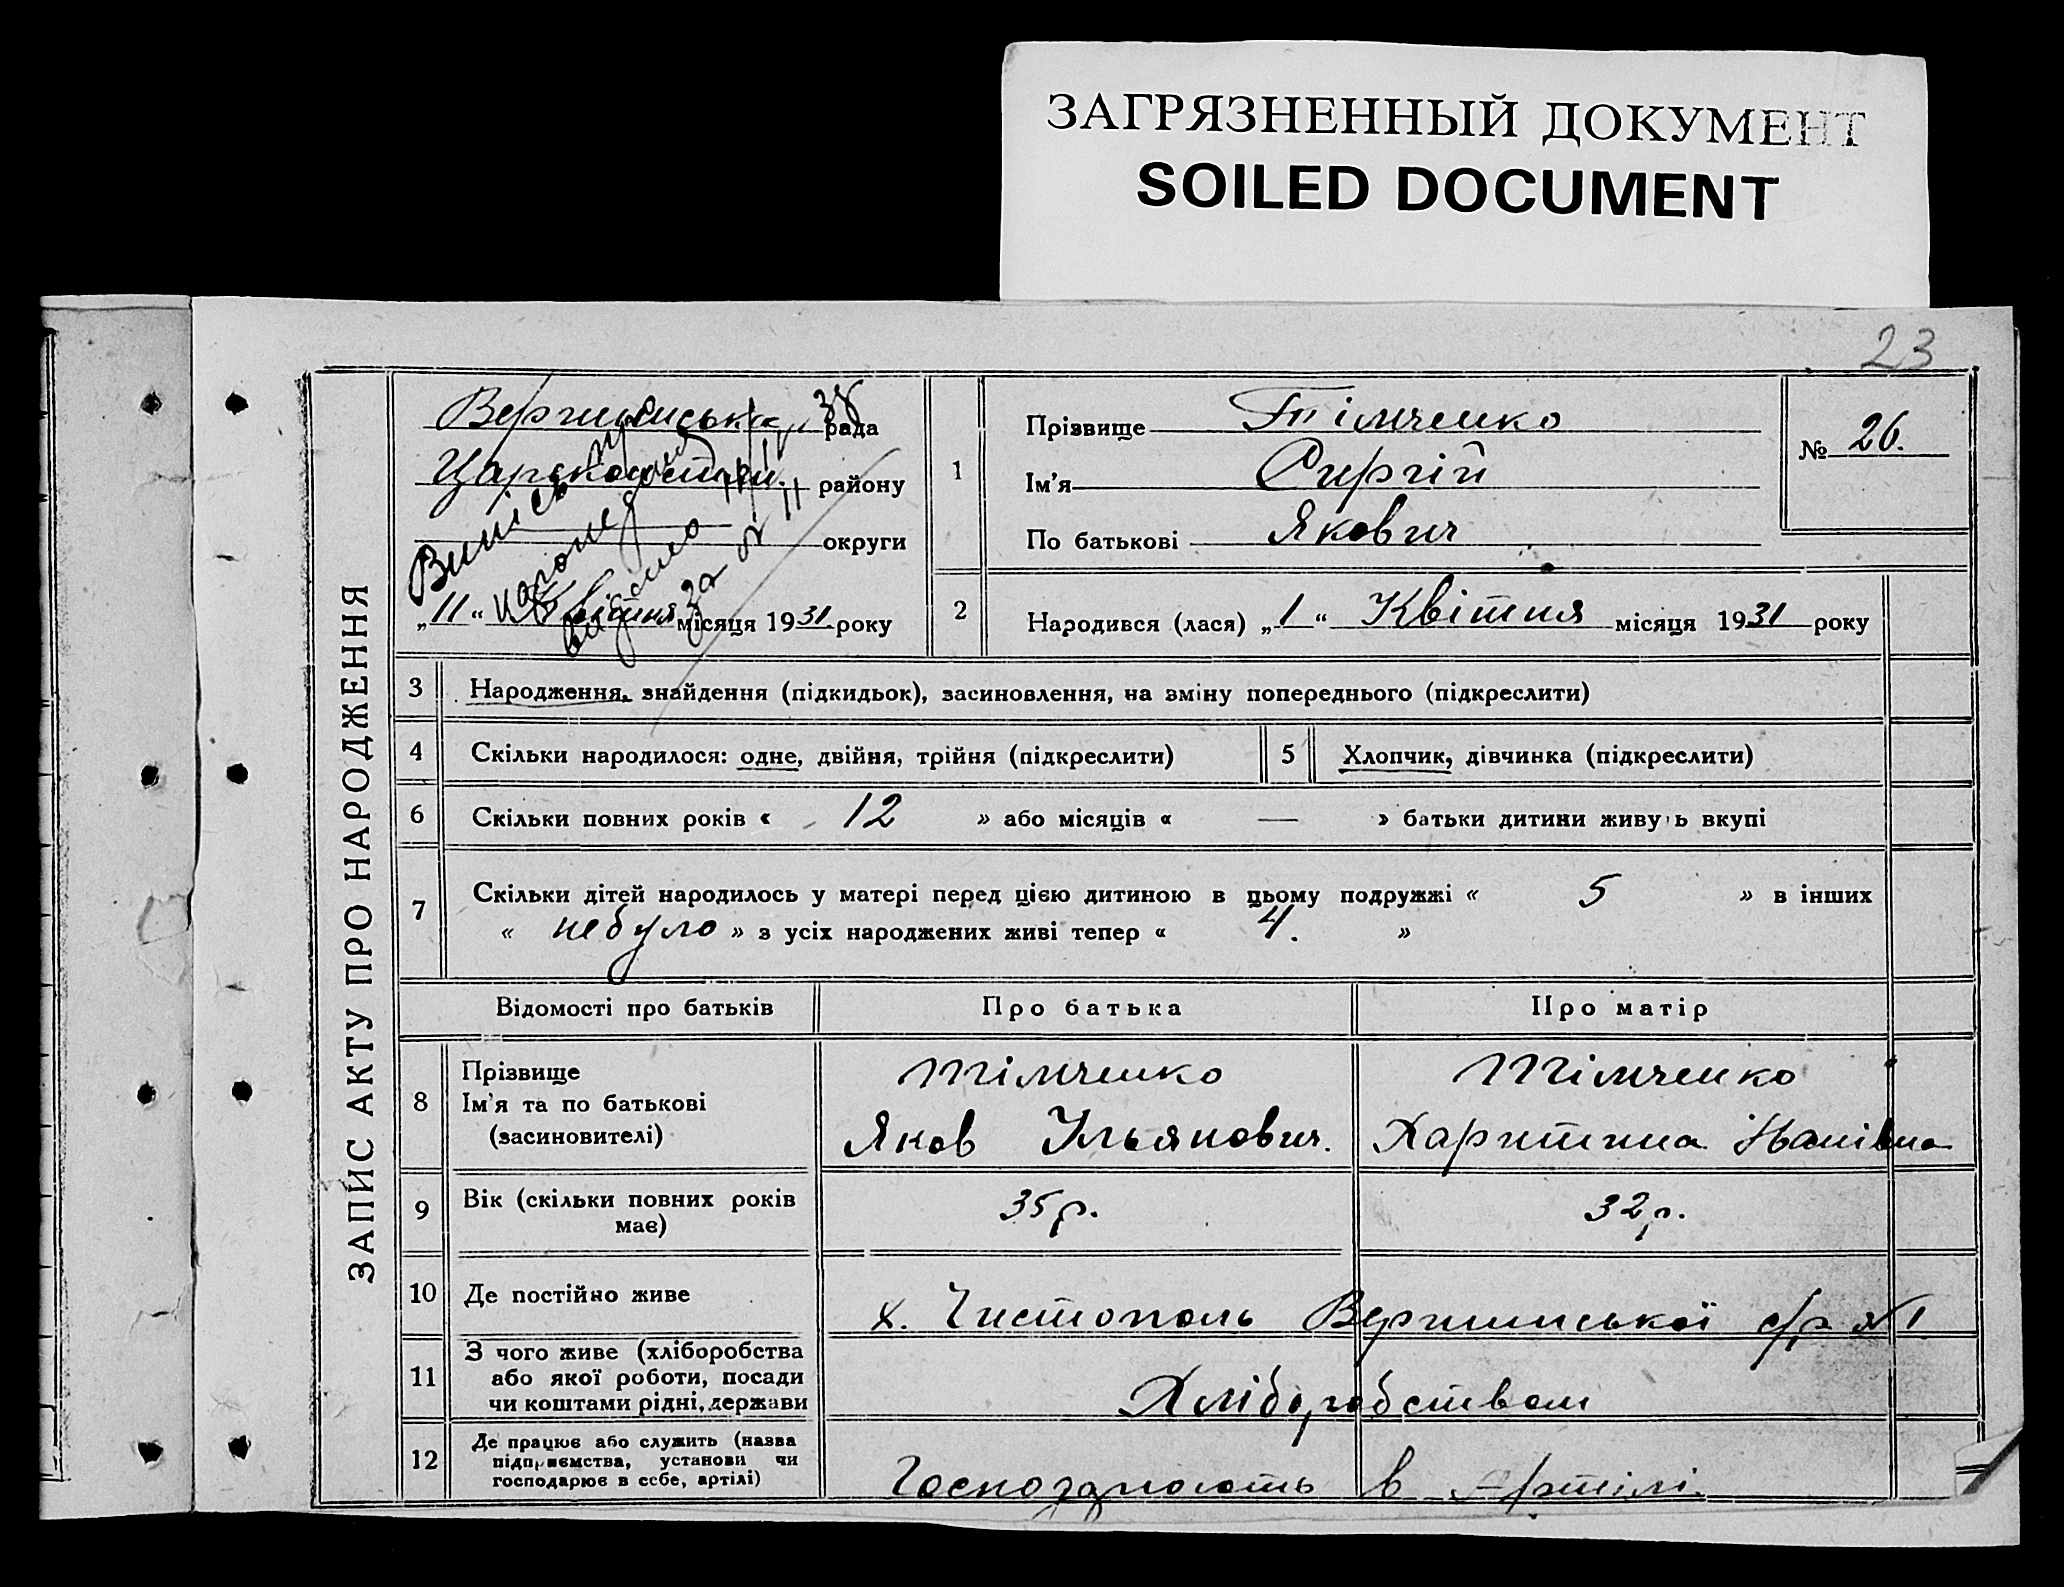 ЗАГРЯЗНЕННЫЙ ДОКУМЕНТ
SOILED DOCUMENT
23
ЗАПИС АКТУ ПРО НАРОДЖЕННЯ
рада
району
округи
„11“ Квітня місяця 1931 року
Випісь
видано
за №
1
Прізвище Тімченко
Ім'я Сиргій
По батькові Якович
№ 26.
2 Народився (лася) „1“ Квітня місяця 1931 року
3 Народження, знайдення (підкидьок), засиновлення, на зміну попереднього (підкреслити)
4 Скільки народилося: одне, двійня, трійня (підкреслити) 5 Хлопчик, дівчинка (підкреслити)
6 Скільки повних років « 12 » або місяців « — » батьки дитини живуть вкупі
7 Скільки дітей народилось у матері перед цією дитиною в цьому подружжі « 5 » в інших
« небуло » з усіх народжених живі тепер « 4. »
Відомості про батьків Про батька Про матір
8 Прізвище Тімченко Тімченко
Ім'я та по батькові Яков Ульянович. Харитина Іванівна
(засиновителі)
9 Вік (скільки повних років має) 35 р. 32 р.
10 Де постійно живе х. Чистополь Вершинської с/р № 1
11 З чого живе (хліборобства
або якої роботи, посади
чи коштами рідні, держави Хліборобством
12 Де працює або служить (назва
підприємства, установи чи
господарює в себе, артілі) Господарюють в Артілі.